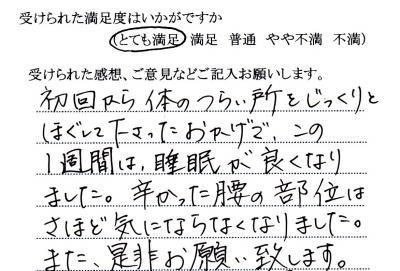 受けられた満足度はいかがですか
(とても満足 満足 普通 やや不満 不満)
受けられた感想、ご意見などご記入お願いします。
初回から体のつらい所をじっくりと
ほぐして下さったおかげで、この
1週間は、睡眠が良くなり
ました。辛かった腰の部位は
さほど気にならなくなりました。
また、是非お願い致します。